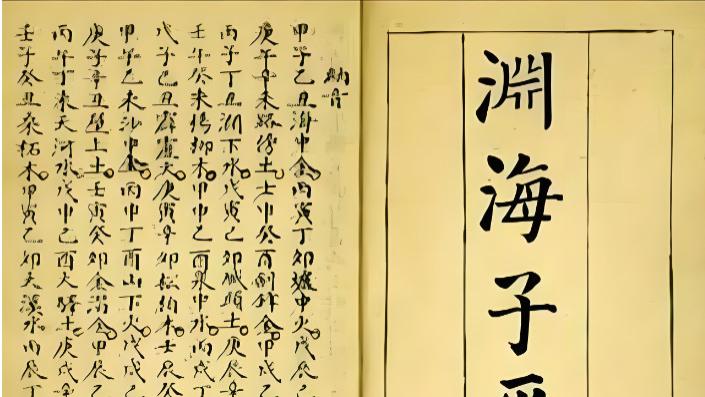 淵海子
納音
甲子乙丑海中金丙寅丁卯爐中火戊辰己
庚午辛未路傍土壬申癸酉劍鋒金甲戌
丙子丁丑澗下水戊寅己卯城頭土庚辰辛
壬午癸未楊柳木甲申乙酉泉中水丙戌
戊子己丑霹靂火庚寅辛卯松柏木壬辰癸
甲午乙未沙中金丙申丁酉山下火戊戌己
庚子辛丑壁上土壬寅癸卯金箔金甲辰乙
丙午丁未天河水戊申己酉大驛土庚戌辛
壬子癸丑桑柘木甲寅乙卯大溪水丙辰丁